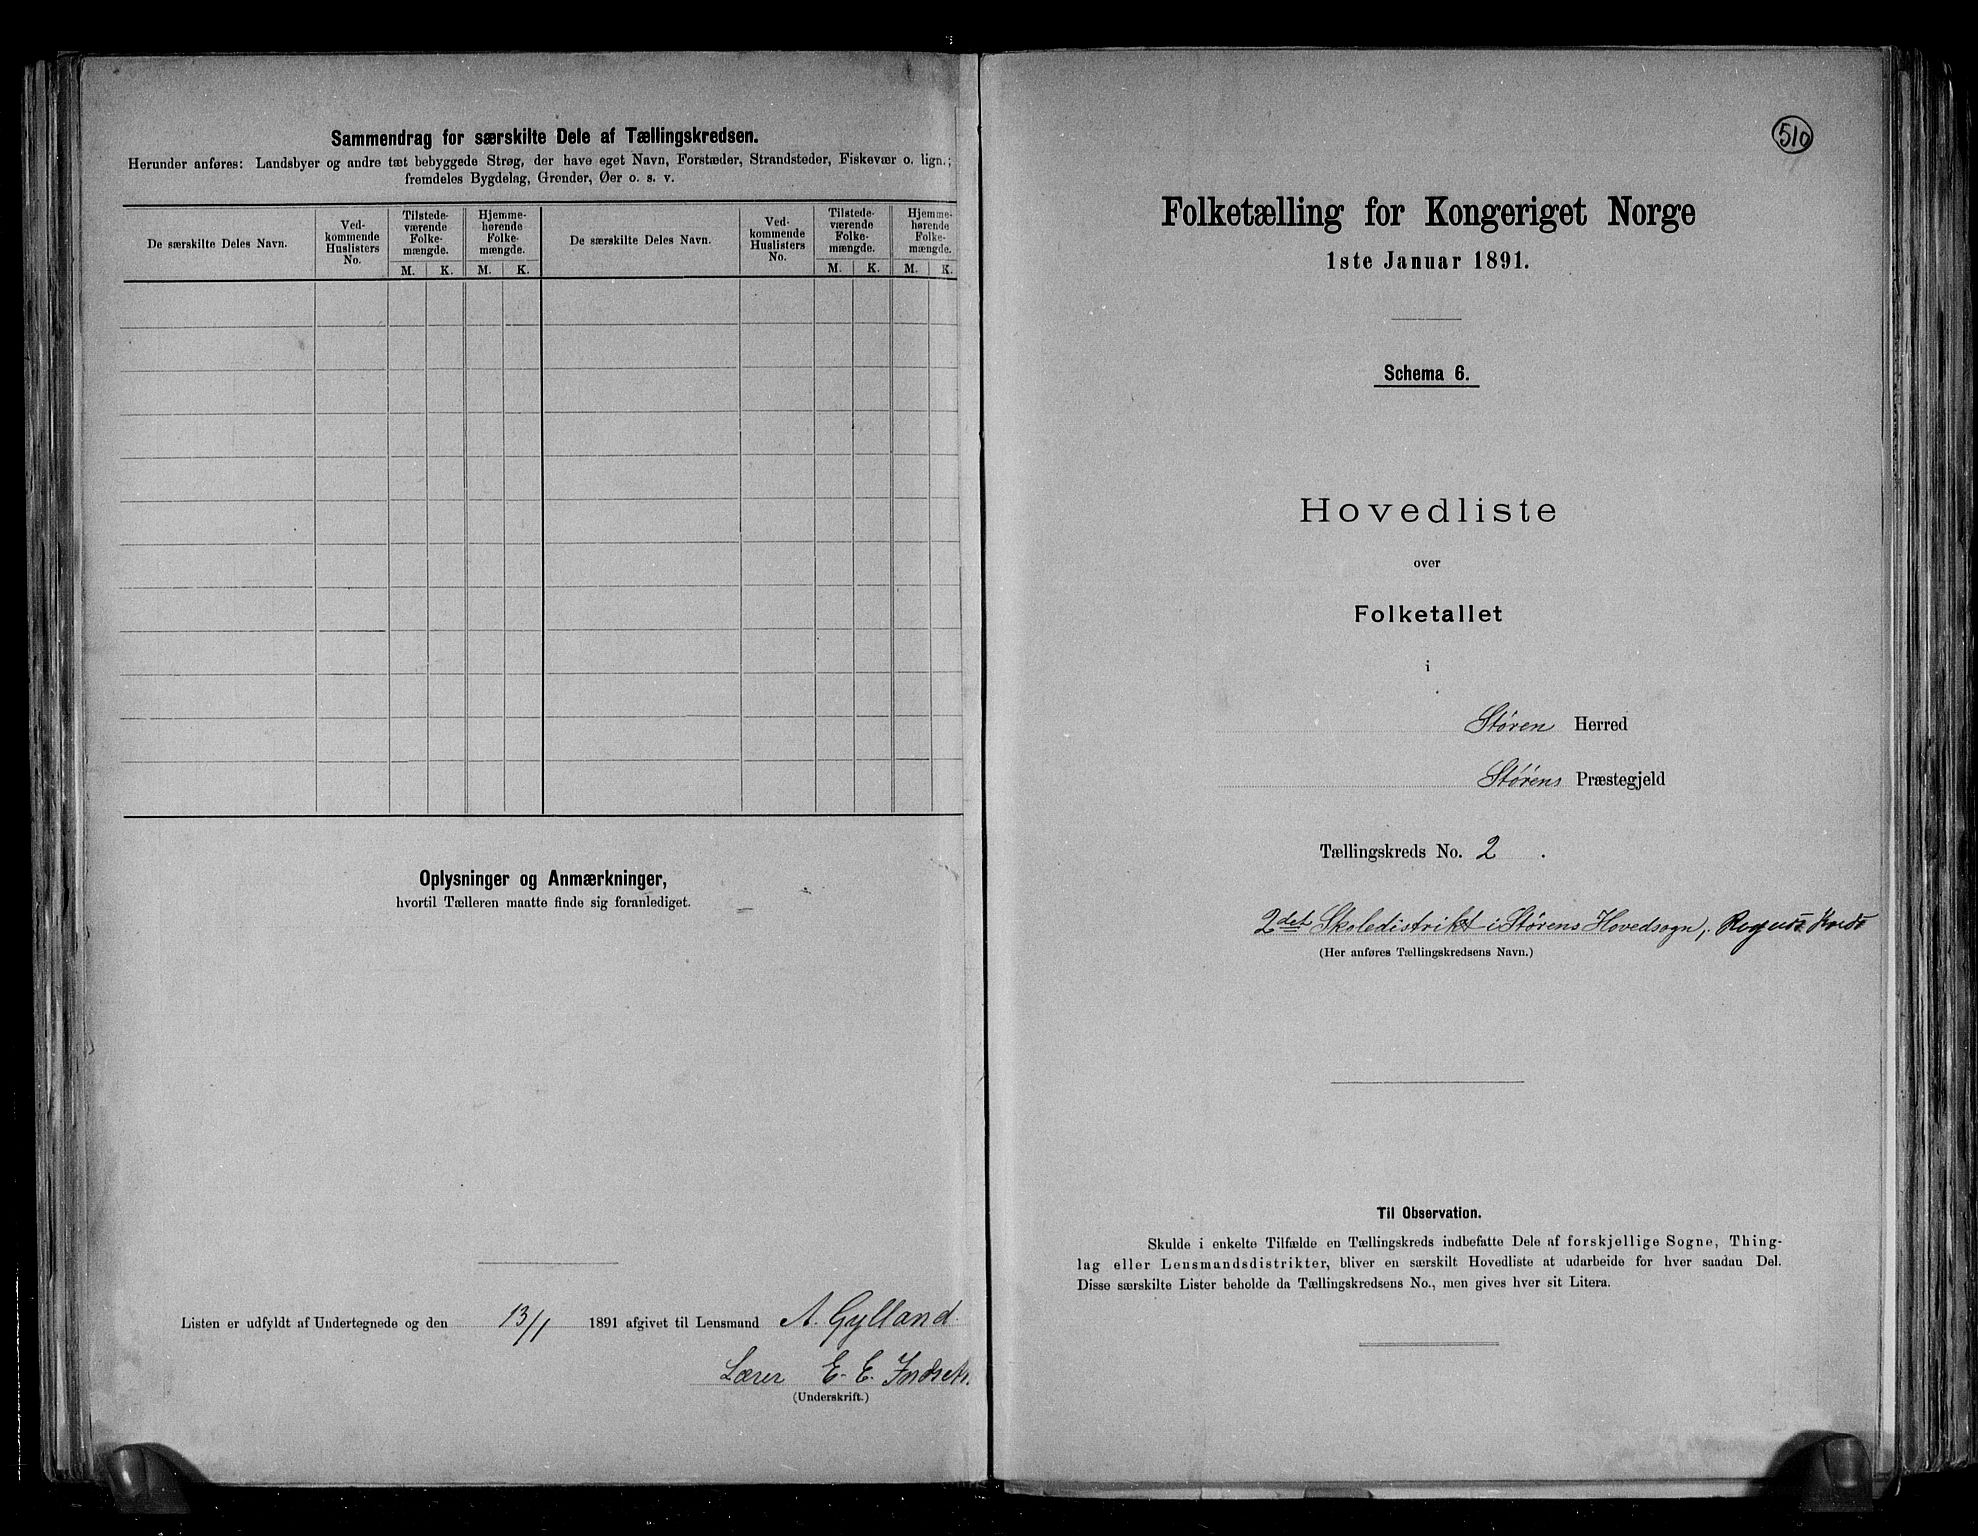 Sammendrag for særskilte Dele af Tællingskredsen.
Herunder anføres: Landsbyer og andre tæt bebyggede Strøg, der have eget Navn, Forstæder, Strandsteder, Fiskevær o. lign.;
fremdeles Bygdelag, Grender, Øer o. s. v.
De særskilte Deles Navn.
Ved-
kommende
Huslisters
No.
Tilstede-
værende
Folke-
mængde.
M. K.
Hjemme-
hørende
Folke-
mængde.
M. K.
De særskilte Deles Navn.
Ved-
kommende
Huslisters
No.
Tilstede-
værende
Folke-
mængde.
M. K.
Hjemme-
hørende
Folke-
mængde.
M. K.
Oplysninger og Anmærkninger,
hvortil Tælleren maatte finde sig foranlediget.
Listen er udfyldt af Undertegnede og den 13/1 1891 afgivet til Lensmand A. Gylland.
Lærer E. E. Indset.
(Underskrift.)
510
Folketælling for Kongeriget Norge
1ste Januar 1891.
Schema 6.
Hovedliste
over
Folketallet
i
Støren Herred
Størens Præstegjeld
Tællingskreds No. 2.
2det Skoledistrikt i Størens Hovedsogn,
(Her anføres Tællingskredsens Navn.)
Til Observation.
Skulde i enkelte Tilfælde en Tællingskreds indbefatte Dele af forskjellige Sogne, Thing-
lag eller Lensmandsdistrikter, bliver en særskilt Hovedliste at udarbeide for hver saadan Del.
Disse særskilte Lister beholde da Tællingskredsens No., men gives hver sit Litera.